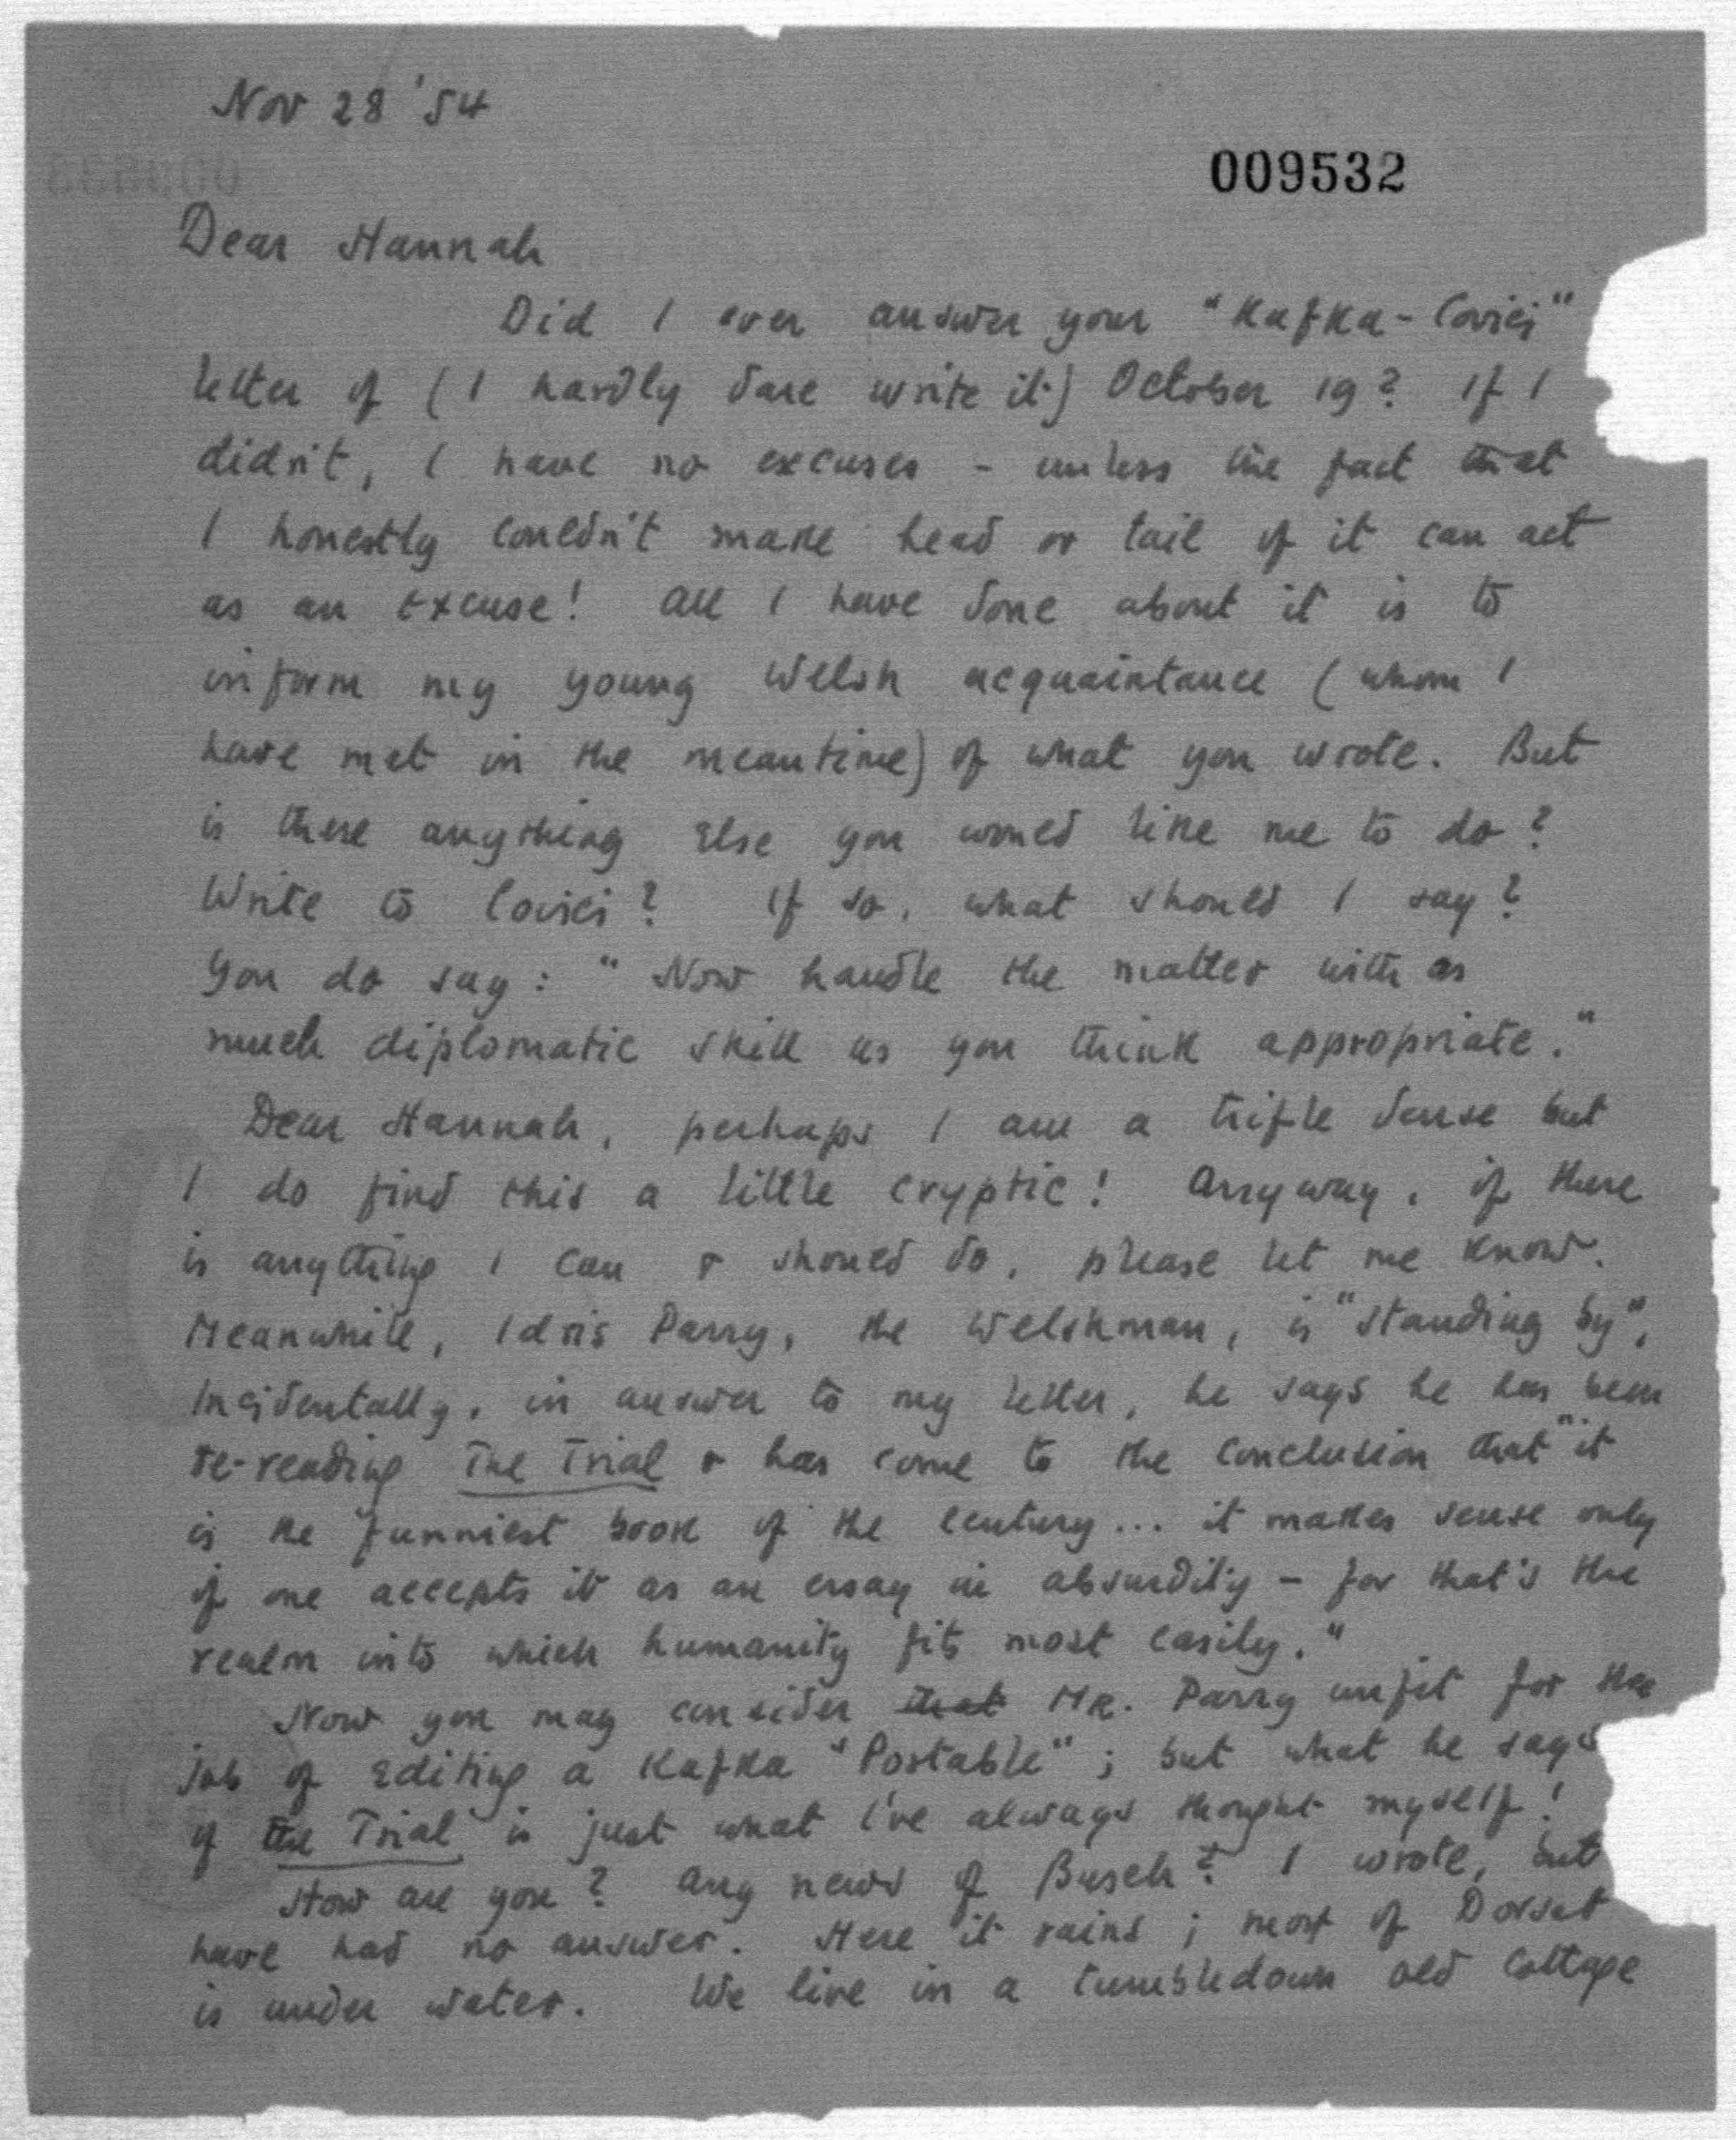 Nov 28 '54
009532
Dear Hannah
Did I ever answer your "Kafka-Covici"
letter of (I hardly dare write it) October 19? If I
didn't, I have no excuses - unless the fact that
I honestly couldn't make head or tail of it can act
as an excuse! All I have done about it is to
inform my young Welsh acquaintance (whom I
have met in the meantime) of what you wrote. But
is there anything else you would like me to do?
Write to Covici? If so, what should I say?
You do say: "Now handle the matter with as
much diplomatic skill as you think appropriate."
Dear Hannah, perhaps I am a trifle dense but
I do find this a little cryptic! Anyway, if there
is anything I can & should do, please let me know.
Meanwhile, Idris Parry, the Welshman, is "standing by".
Incidentally, in answer to my letter, he says he has been
re-reading The Trial & has come to the conclusion that "it
is the funniest book of the century... it makes sense only
if one accepts it as an essay in absurdity - for that's the
realm into which humanity fits most easily."
Now you may consider that Mr. Parry unfit for the
job of editing a Kafka "Portable"; but what he says
of the Trial is just what I've always thought myself!
How are you? Any news of Busch? I wrote, but
have had no answer. Here it rains; most of Dorset
is under water. We live in a tumbledown old cottage